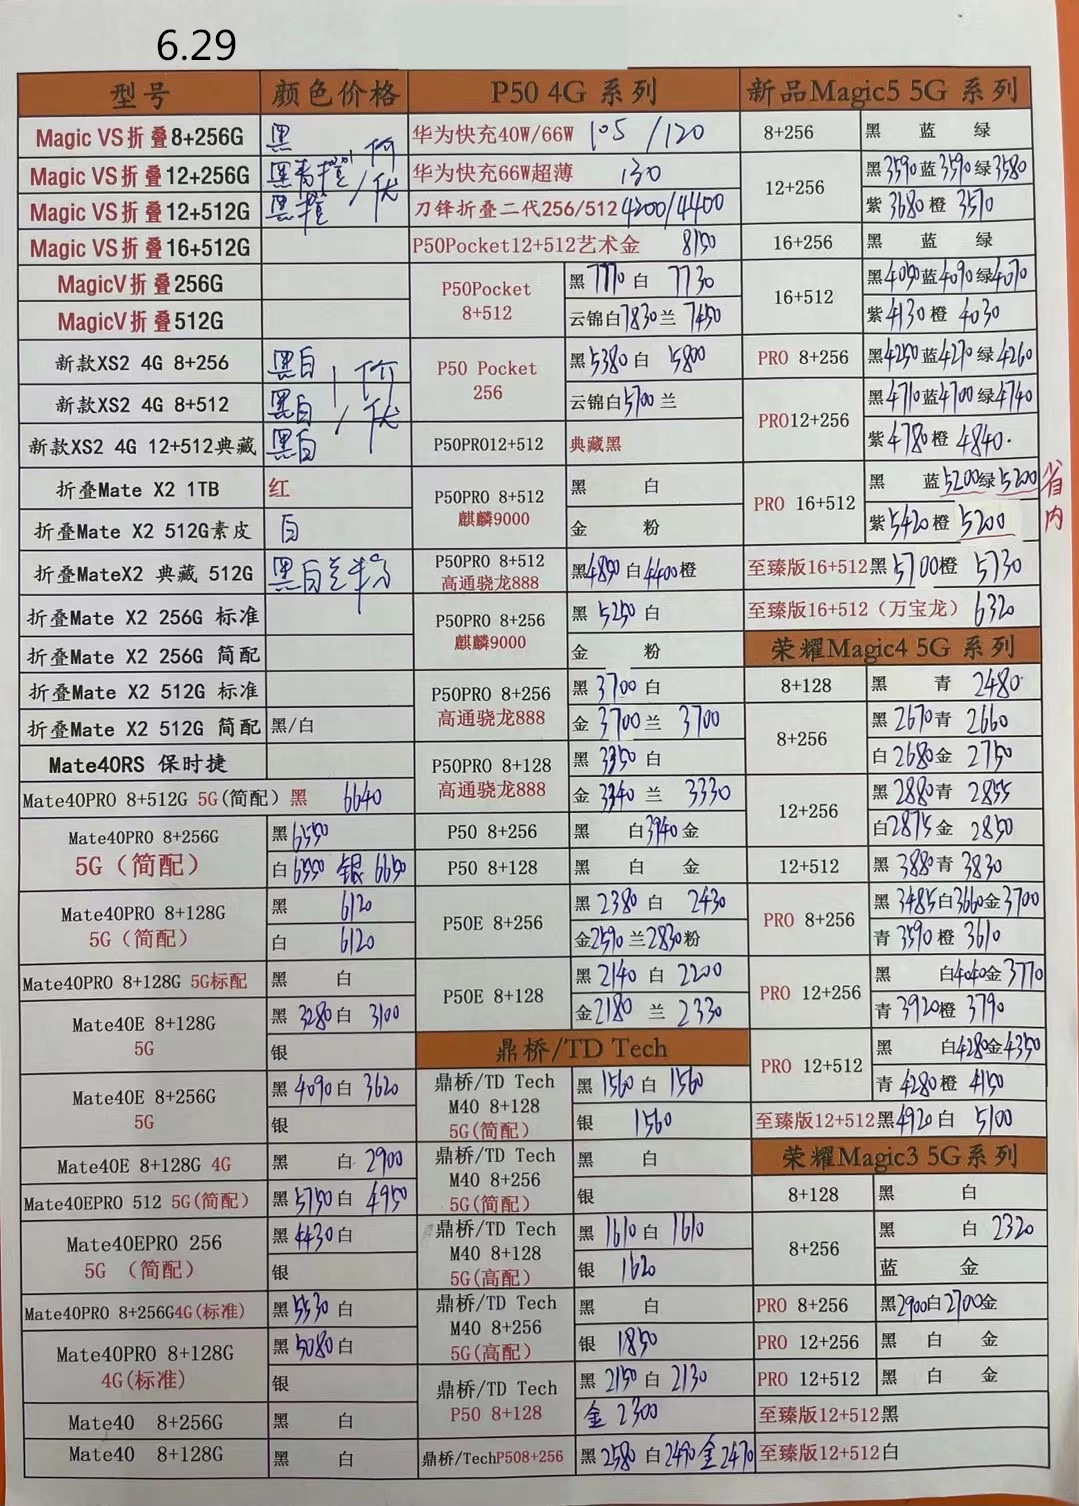 6.29
型号 颜色价格 P50 4G 系列 新品Magic5 5G 系列
Magic VS折叠8+256G 黑
Magic VS折叠12+256G 黑青橙
Magic VS折叠12+512G 黑橙
Magic VS折叠16+512G
MagicV折叠256G
MagicV折叠512G
新款XS2 4G 8+256 黑白
新款XS2 4G 8+512 黑白
新款XS2 4G 12+512典藏 黑白
折叠Mate X2 1TB 红
折叠Mate X2 512G素皮 白
折叠MateX2 典藏 512G 黑白兰
折叠Mate X2 256G 标准
折叠Mate X2 256G 简配
折叠Mate X2 512G 标准
折叠Mate X2 512G 简配 黑/白
Mate40RS 保时捷
Mate40PRO 8+512G 5G(简配) 黑 6640
Mate40PRO 8+256G 黑6550
5G(简配) 白6550 银 6650
Mate40PRO 8+128G 黑 6120
5G(简配) 白 6120
Mate40PRO 8+128G 5G标配 黑 白
Mate40E 8+128G 黑 3280白 3100
5G 银
Mate40E 8+256G 黑 4090白 3620
5G 银
Mate40E 8+128G 4G 黑 白 2900
Mate40EPRO 512 5G(简配) 黑5750白 4950
Mate40EPRO 256 黑4430白
5G (简配) 银
Mate40PRO 8+256G4G(标准) 黑5530白
Mate40PRO 8+128G 黑5080白
4G(标准) 银
Mate40 8+256G 黑 白
Mate40 8+128G 黑 白
华为快充40W/66W 105 /120
华为快充66W超薄 130
刀锋折叠二代256/512 4200/4400
P50Pocket12+512艺术金 8150
P50Pocket 黑 7770 白 7730
8+512 云锦白7830兰 7450
P50 Pocket 黑5380 白 5800
256 云锦白5700兰
P50PRO12+512 典藏黑
P50PRO 8+512 黑 白
麒麟9000 金 粉
P50PRO 8+512
高通骁龙888 黑4890白4400橙
P50PRO 8+256 黑 5250 白
麒麟9000 金 粉
P50PRO 8+256 黑 3700 白
高通骁龙888 金 3700兰 3700
P50PRO 8+128 黑 3350 白
高通骁龙888 金 3340 兰 3330
P50 8+256 黑 白3940金
P50 8+128 黑 白 金
P50E 8+256 黑 2380 白 2430
金2590兰2830粉
P50E 8+128 黑 2140 白 2200
金2180 兰 2330
鼎桥/TD Tech
鼎桥/TD Tech
M40 8+128 黑 1560 白 1560
5G(简配) 银 1560
鼎桥/TD Tech
M40 8+256 黑 白
5G(简配) 银
鼎桥/TD Tech
M40 8+128 黑 1610白 1610
5G(高配) 银 1620
鼎桥/TD Tech
M40 8+256 黑 白
5G(高配) 银 1850
鼎桥/TD Tech 黑 2150 白 2130
P50 8+128 金 2300
鼎桥/TechP508+256 黑 2580 白2490金2470
8+256 黑 蓝 绿
12+256 黑3590蓝3590绿3580
紫 3680橙 3510
16+256 黑 蓝 绿
16+512 黑4050蓝4090绿4070
紫4130橙 4030
PRO 8+256 黑4250蓝4270绿4260
PRO12+256 黑4710蓝4700绿4740
紫4780橙 4840
PRO 16+512 黑 蓝5200绿5200
紫5420橙 5200
省内
至臻版16+512黑 5700橙 5730
至臻版16+512(万宝龙) 6320
荣耀Magic4 5G 系列
8+128 黑 青 2480
8+256 黑 2670青 2660
白2680金 2750
12+256 黑 2880青 2855
白2875金 2850
12+512 黑 3880青 3830
PRO 8+256 黑 3485白3660金3700
青 3590橙 3610
PRO 12+256 黑 白4040金3770
青 3920橙 3790
PRO 12+512 黑 白4280金4350
青 4280橙 4150
至臻版12+512黑4920白 5100
荣耀Magic3 5G系列
8+128 黑 白
8+256 黑 白 2320
蓝 金
PRO 8+256 黑2900白2700金
PRO 12+256 黑 白 金
PRO 12+512 黑 白 金
至臻版12+512黑
至臻版12+512白